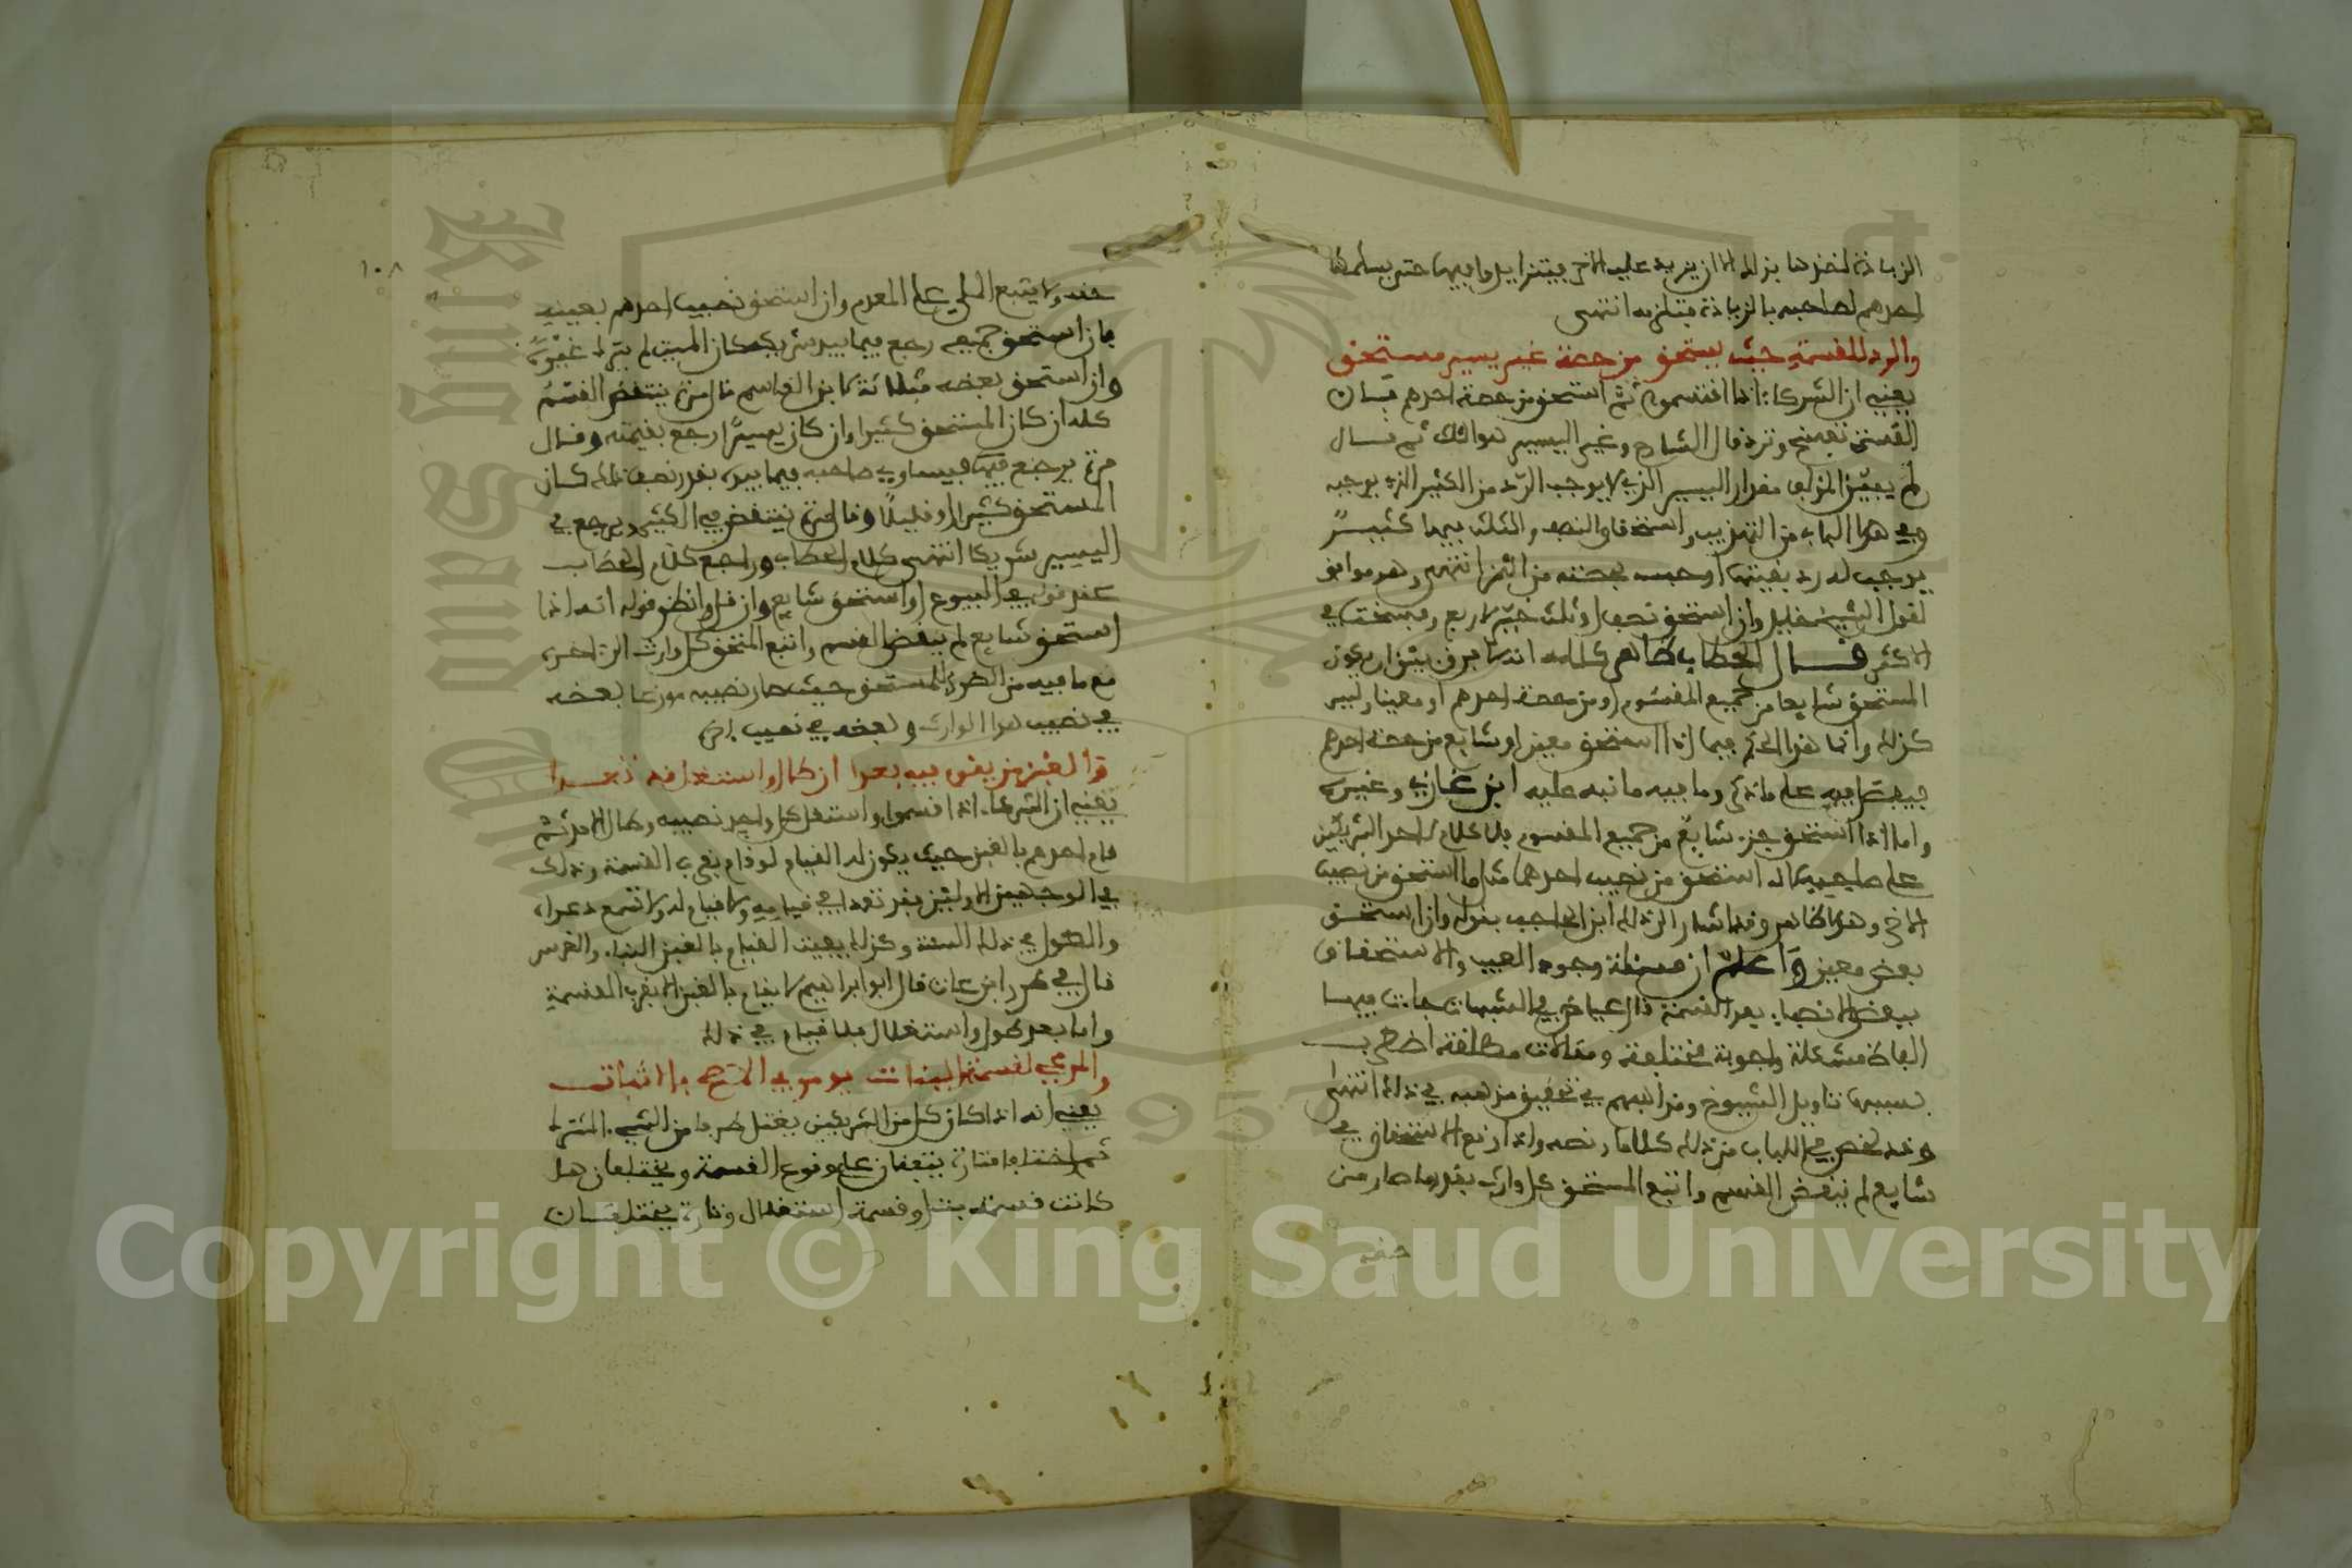 الزيادة لاخذها بذلك الا ان يزيد عليه الاخر فيتزايدوا فيها حتى يسلمها
احدهم لصاحبه بالزيادة فتلزمه انتهى
والرد للقسمة حيث يستحق من حصة غير يسير مستحق
يعني ان الشركاء اذا اقتسموا ثم استحق من حصة احدهم فان
القسمة تفسخ وترد قال الشارح وغير اليسير هو الثلث ثم قال
لم يبين المؤلف مقدار اليسير الذي لا يوجب الرد من الكثير الذي يوجبه
وفي هذا الباب من التهذيب واستحقاق النصف والثلث فيها كثير
يوجب له رد بقيتها او حبسه بحصته من الثمن انتهى وهو موافق
لقول الشيخ خليل وان استحق نصف او ثلث خير لا ربع وفسخت في
الاكثر قال الحطاب ظاهر كلامه انه لا فرق بين ان يكون
المستحق شايعا من جميع المقسوم او من حصة احدهم او معينا وليس
كذلك وانما هذا الحكم فيما اذا استحق معين او شايع من حصة احدهم
فيفصل فيه على ما ذكر وما فيه ما نبه عليه ابن غازي وغيره
واما اذا استحق جزء شايع من جميع المقسوم فلا كلام لاحد الشريكين
على صاحبه لانه استحق من نصيب احدهما مثل ما استحق من نصيب
الاخر وهذا ظاهر وقد اشار الى ذلك ابن الحاجب بقوله وان استحق
بعض معين واعلم ان مسئلة وجود العيب والاستحقاق
ببعض الانصباء بعد القسمة قال عياض في التنبيهات جات فيها
الفاظ مشكلة واجوبة مختلفة ومقالات مطلقة اضطرب
بسببها تاويل الشيوخ ومذاهبهم في تحقيق مذهبه في ذلك انتهى
وقد لخص في اللباب من ذلك كلاما ونصه واذا وقع الاستحقاق في
شايع لم ينقض القسم واتبع المستحق كل وارث بقدر ما صار من
حقه
١٠٨
حقه ولا يتبع الملي على المعدم وان استحق نصيب احدهم بعينه
فان استحق جميعه رجع فيما بيد شريكه كان الميت لم يترك غيره
وان استحق بعضه فثلاثة لابن القاسم قال مرة ينتقض القسم
كله ان كان المستحق كثيرا وان كان يسيرا رجع بقيمته وقال
مرة يرجع فيساوي صاحبه فيما بيده بقدر نصف ذلك كان
المستحق كثيرا او قليلا وقال مرة ينتقض في الكثير ويرجع في
اليسير شريكا انتهى كلام الحطاب وراجع كلام الحطاب
عند قوله في البيوع او استحق شايع وان قل وانظر قوله انه اذا
استحق شايع لم ينقض القسم واتبع المستحق كل وارث الى اخره
مع ما فيه من الضرر للمستحق حيث صار نصيبه موزعا بعضه
في نصيب هذا الوارث وبعضه في نصيب اخر
والغبن من يقوم فيه بعدا ان طال واستغل فقد تعدا
يعني ان الشركاء اذا اقسموا واستغل كل واحد نصيبه وطال الامد ثم
قام احدهم بالغبن حيث يكون له القيام لو قام بقرب القسمة وذلك
في الوجهين الاولين فقد تعدا في قيامه ولا قيام له ولا تسمع دعواه
والطول في ذلك السنة وكذلك يفيت القيام بالغبن البناء والغرس
قال في طرر ابن عات قال ابو ابراهيم لا يقام بالغبن الا بقرب القسمة
واما بعد طول واستغلال فلا قيام في ذلك
والمدعي لقسمة البتات يومر في الاصح بالاثبات
يعني انه اذا كان كل من الشريكين يغتل طرفا من الشيء المشترك
ثم اختلفا فتارة يتفقان على وقوع القسمة ويختلفان هل
كانت قسمة بت او قسمة استغلال وتارة يختلفان
Copyright © King Saud University
King Saud University
1957